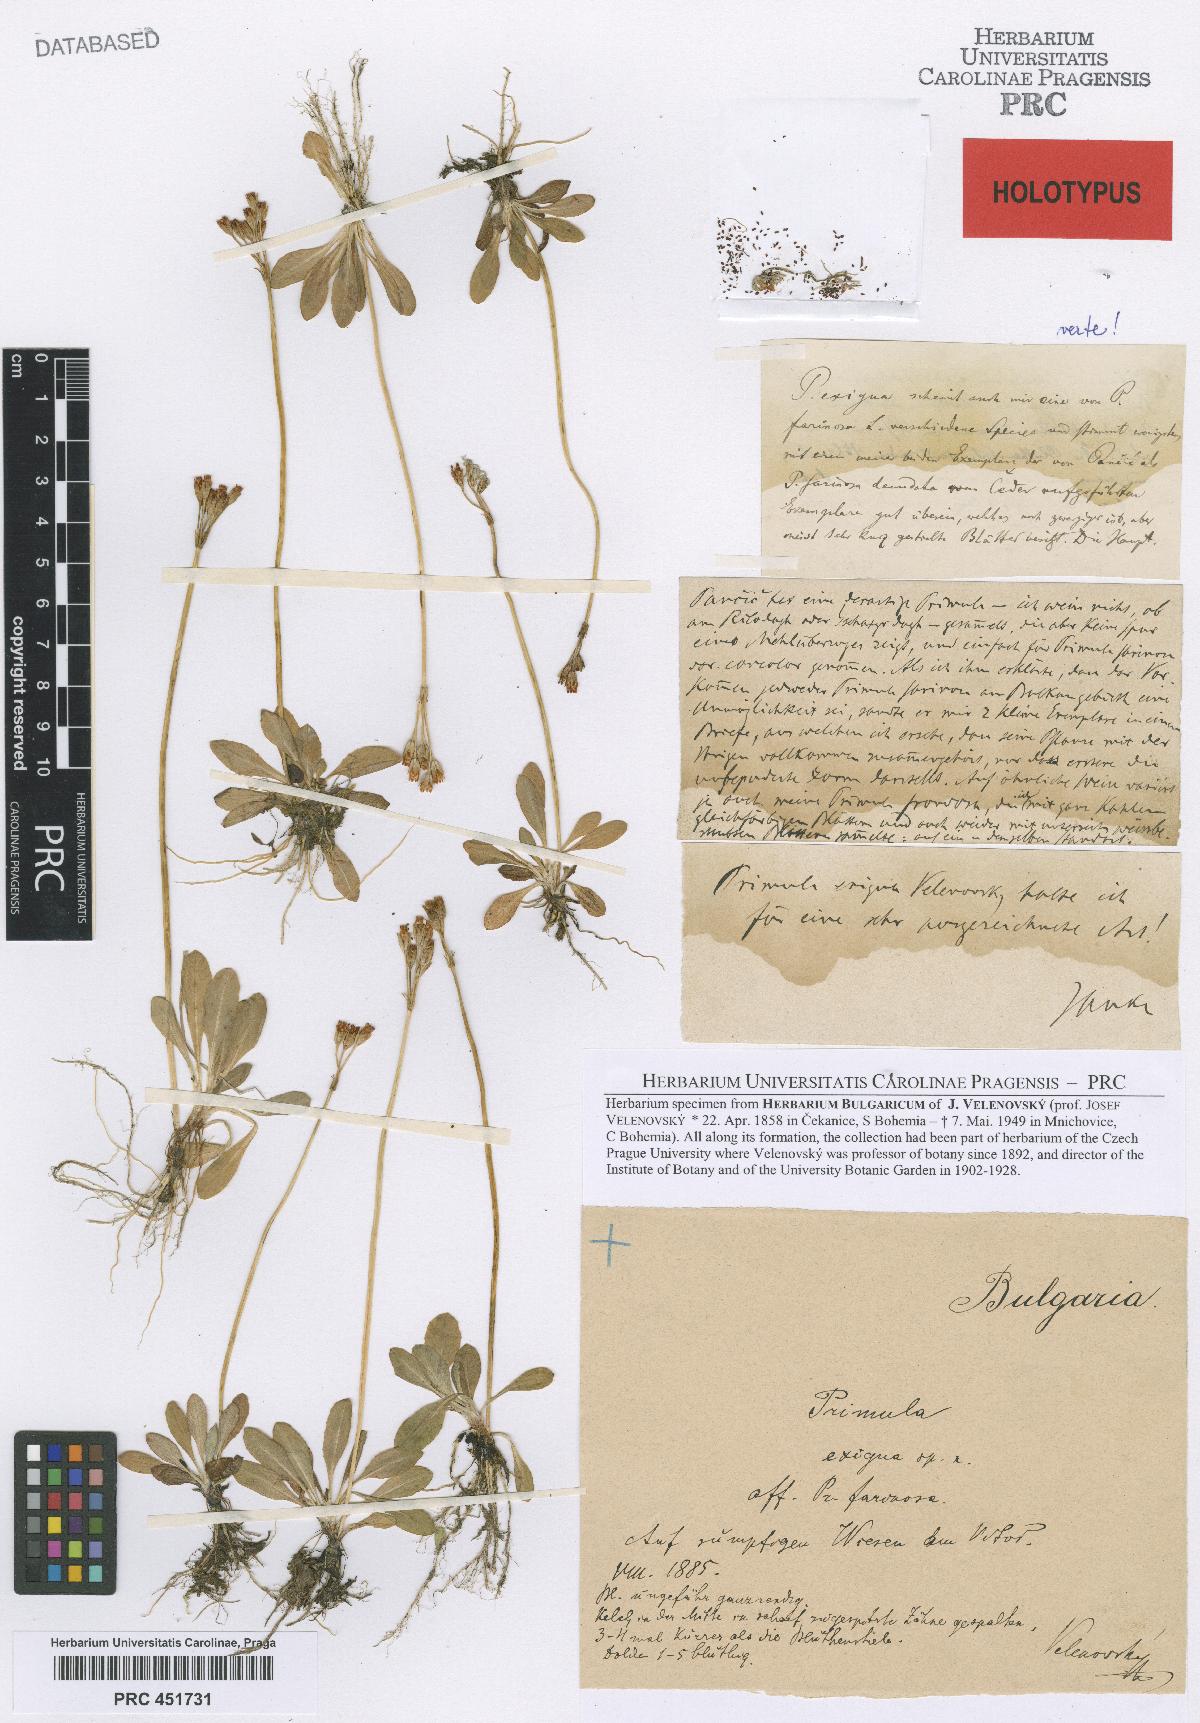 DATABASED
HERBARIUM
UNIVERSITATIS
CAROLINAE PRAGENSIS
PRC
HOLOTYPUS
verte!
P. exigua scheint auch mir eine von P.
farinosa L. verschiedene Species und stimmt
mit einem meiner beiden Exemplare der von Pančić als
P. farinosa denudata vom Čeder aufgeführten
Exemplare gut überein, welches noch ist, aber
meist sehr kurz gestielte Blätter besitzt. Die Haupt-
Pančić hat eine derartige Primula – ich weiss nicht, ob
am Rilodagh oder – gesammelt, die aber keine Spur
eines Mehlüberzuges zeigt, und einfach für Primula farinosa
var. concolor genommen. Als ich ihm erklärte, dass das Vor-
kommen jedweder Primula farinosa am Balkangebirge eine
Unmöglichkeit sei, sandte er mir 2 kleine Exemplare in einem
Briefe, aus welchen ich ersehe, dass seine Pflanze mit der
Ihrigen vollkommen zusammengehört, nur dass erstere die
unbepuderte Form darstellt. Auf ähnliche Weise variirt
ja auch meine Primula frondosa, die ich mit ganz kahlen
gleichfarbigen Blättern und auch wieder mit unterseits weissbe-
Blättern sammelte: auf ein u. demselben Standort.
Primula exigua Velenovsky halte ich
für eine sehr ausgezeichnete Art!
Janka
cm
0
1
2
3
4
5
6
7
8
9
10
copyright reserved
HERBARIUM UNIVERSITATIS
CAROLINAE PRAGENSIS
PRC
HERBARIUM UNIVERSITATIS CAROLINAE PRAGENSIS – PRC
Herbarium specimen from HERBARIUM BULGARICUM of J. VELENOVSKÝ (prof. JOSEF
VELENOVSKÝ * 22. Apr. 1858 in Čekanice, S Bohemia – † 7. Mai. 1949 in Mnichovice,
C Bohemia). All along its formation, the collection had been part of herbarium of the Czech
Prague University where Velenovský was professor of botany since 1892, and director of the
Institute of Botany and of the University Botanic Garden in 1902-1928.
Bulgaria.
Primula
exigua sp. n.
aff. Pr. farinosa.
Auf sumpfigen Wiesen am Vitoš.
VIII. 1885.
Bl. ungefähr ganzrandig.
Kelch in der Mitte in scharf zugespitzte Zähne gespalten,
3-4 mal kürzer als die Blüthenstiele.
Dolde 1-5 blüthig.
Velenovský
Herbarium Universitatis Carolinae, Praga
PRC 451731